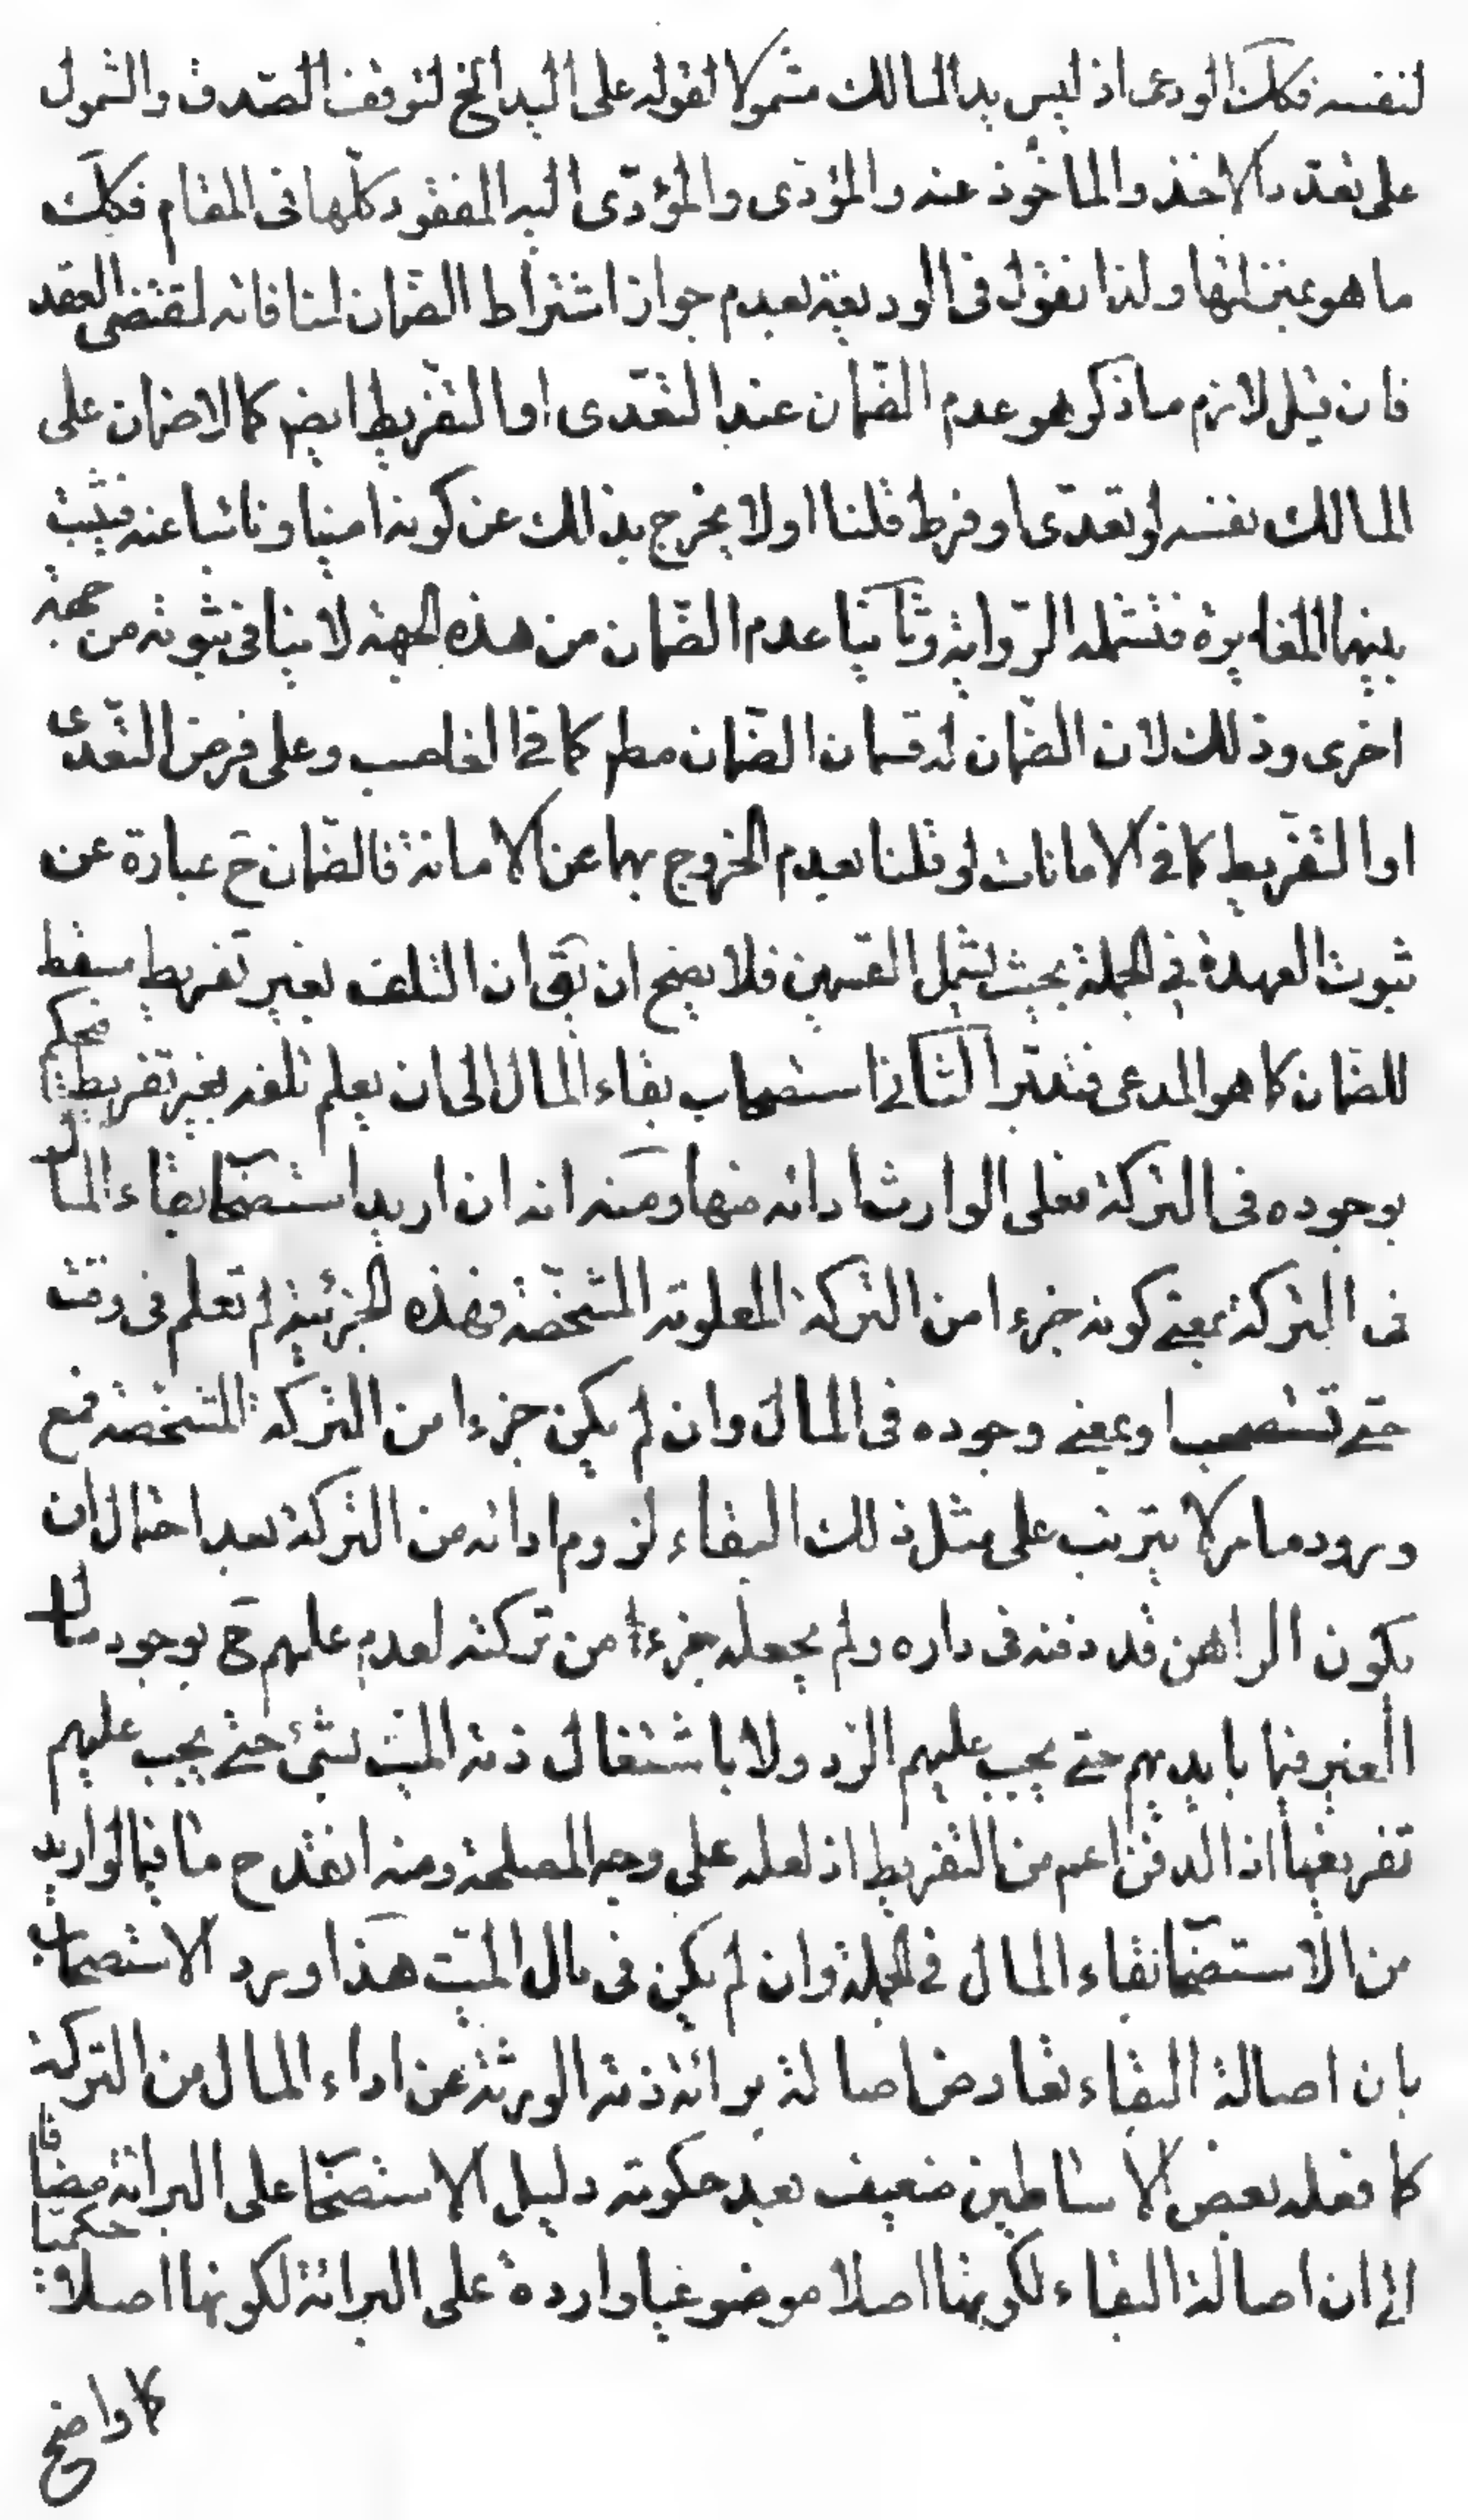 لنفسه فكك الودعى اذ ليس يد المالك مشمولا لقوله على اليد الخ لتوقف الصّدق والشمول
على تعدّد الاخذ والماخوذ عنه والمؤدّى والمؤدّى اليه المفقود كلّها فى المقام فكك
ما هو بمنزلتها ولذا نقول فى الوديعة بعدم جواز اشتراط الضّمان لمنافاته لمقتضى العقد
فان قيل لازم ما ذكر هو عدم الضّمان عند التعّدى او التفريط ايضً كما لا ضمان على
المالك نفسه لو تعدّى او فرط قلنا اولا يخرج بذالك عن كونه امينا ونائبا عنه فيثبت
بينهما المغايرة فتشمله الرّواية وثانيا عدم الضّمان من هذه الجهة لا ينافى ثبوته من جهة
اخرى وذلك لان الضّمان له قسمان الضّمان مطلقا كما فى الغاصب وعلى فرض التعّدى
او التفريط كما فى الامانات لو قلنا بعدم الخروج بهما عن الامانة فالضّمان ح عبارة عن
ثبوت العهدة فى الجملة بحيث يشمل القسمين فلا يصح ان يق ان التلف بغير تفريط مسقط
للضّمان كما هو المدعى فتدبّر الثانى استصحاب بقاء المال الى ان يعلم تلفه بغير تفريط فيحكم
بوجوده فى التركة فعلى الوارث ادائه منها وفيه انه ان اريد استصحا بقاء المال
فى التركة بمعنى كونه جزءا من التركة المعلومة المشخّصة فهذه الجزئية لم تعلم فى وقت
حتى تستصحب او بمعنى وجوده فى المال وان لم يكن جزءا من التركة المشخصة فمع
ورود ما مر لا يترتب على مثل ذلك البقاء لزوم ادائه من التركة بعد احتمال ان
يكون الراهن قد دفنه فى داره ولم يجعله جزءا من تركته لعدم علمهم ح بوجود مال
الغير فيما بايديهم حتى يجب عليهم الرّد ولا باشتغال ذمة الميّت بشئ حتى يجب عليهم
تفريغها اذ الدفن اعم من التفريط اذ لعله على وجه المصلحة ومنه انقدح ما فيما لو اريد
من الاستصحا بقاء المال فى الجملة وان لم يكن فى مال الميّت هذا ويرد الاستصحاب
بان اصالة البقاء تعارض اصالة برائة ذمة الورثة عن اداء المال من التركة
كما فعله بعض الاساطين ضعيف بعد حكومة دليل الاستصحا على البرائة مضافا
الى ان اصالة البقاء لكونها اصلا موضوعيا واردة على البرائة لكونها اصلا حكميّا
كما واضح